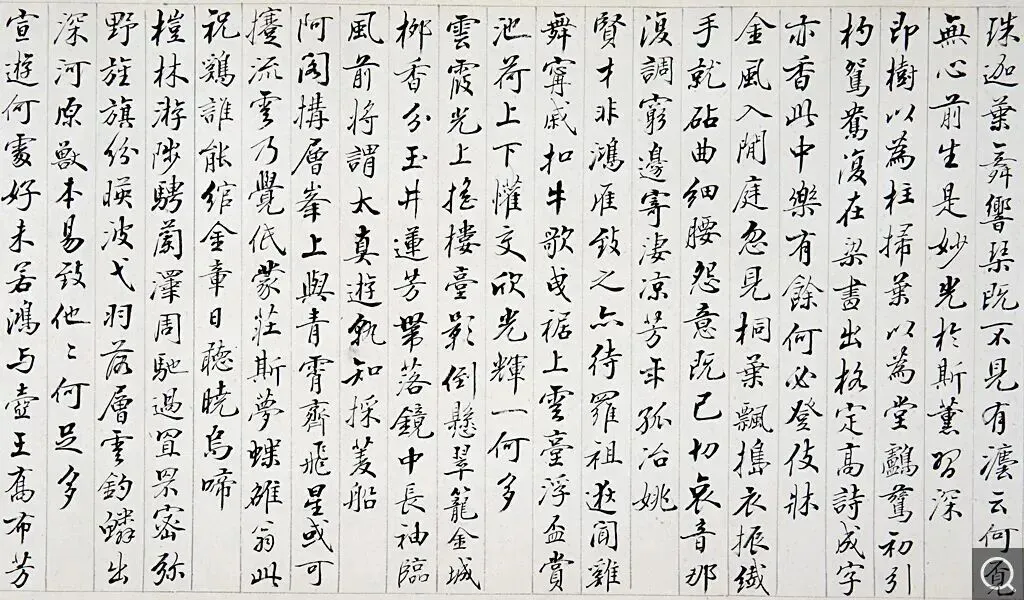 珠迦葉舞響琹既不見有瀍云何
無心前生是妙光於斯薰習深
即樹以為柱掃葉以為堂鸝鶯初引
杓鴛鴦復在梁畫出格定高詩成字
亦香此中樂有餘何必登伎牀
金風入閒庭忽見桐葉飄搗衣振纖
手就砧曲細腰怨意既已切哀音那
復調窮邊寄淒凉芳年孤冶姚
賢才非鴻雁致之亦待羅祖逖聞雞
舞寗戚扣牛歌曵裾上雲臺浮盃賞
池荷上下懽交欣光輝一何多
雲霞光上搖樓臺影倒懸翠籠金城
柳香分玉井蓮芳黛落鏡中長袖臨
風前將謂太真遊孰知採菱船
阿閣搆層峯上與青霄齊飛星或可
攓流雲乃覺低蒙莊斯夢蝶雒翁此
祝鷄誰能綰金章日聽曉烏啼
林游陟騁蘭澤周馳過罝罘密弥
野旌旗份暎波弋羽落層雲釣鱗出
深河原獸本易致他〻何足多
宣遊何處好未若鴻与壺王喬布芳